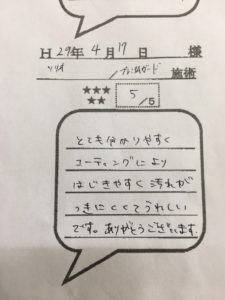 H 29年 4月 17日 様
ソリオ / ナノ ガード 施術
★★★
★★
5/5
とても分かりやすく
コーティングにより
はじきやすく汚れが
つきにくくてうれしい
です。ありがとうございます.